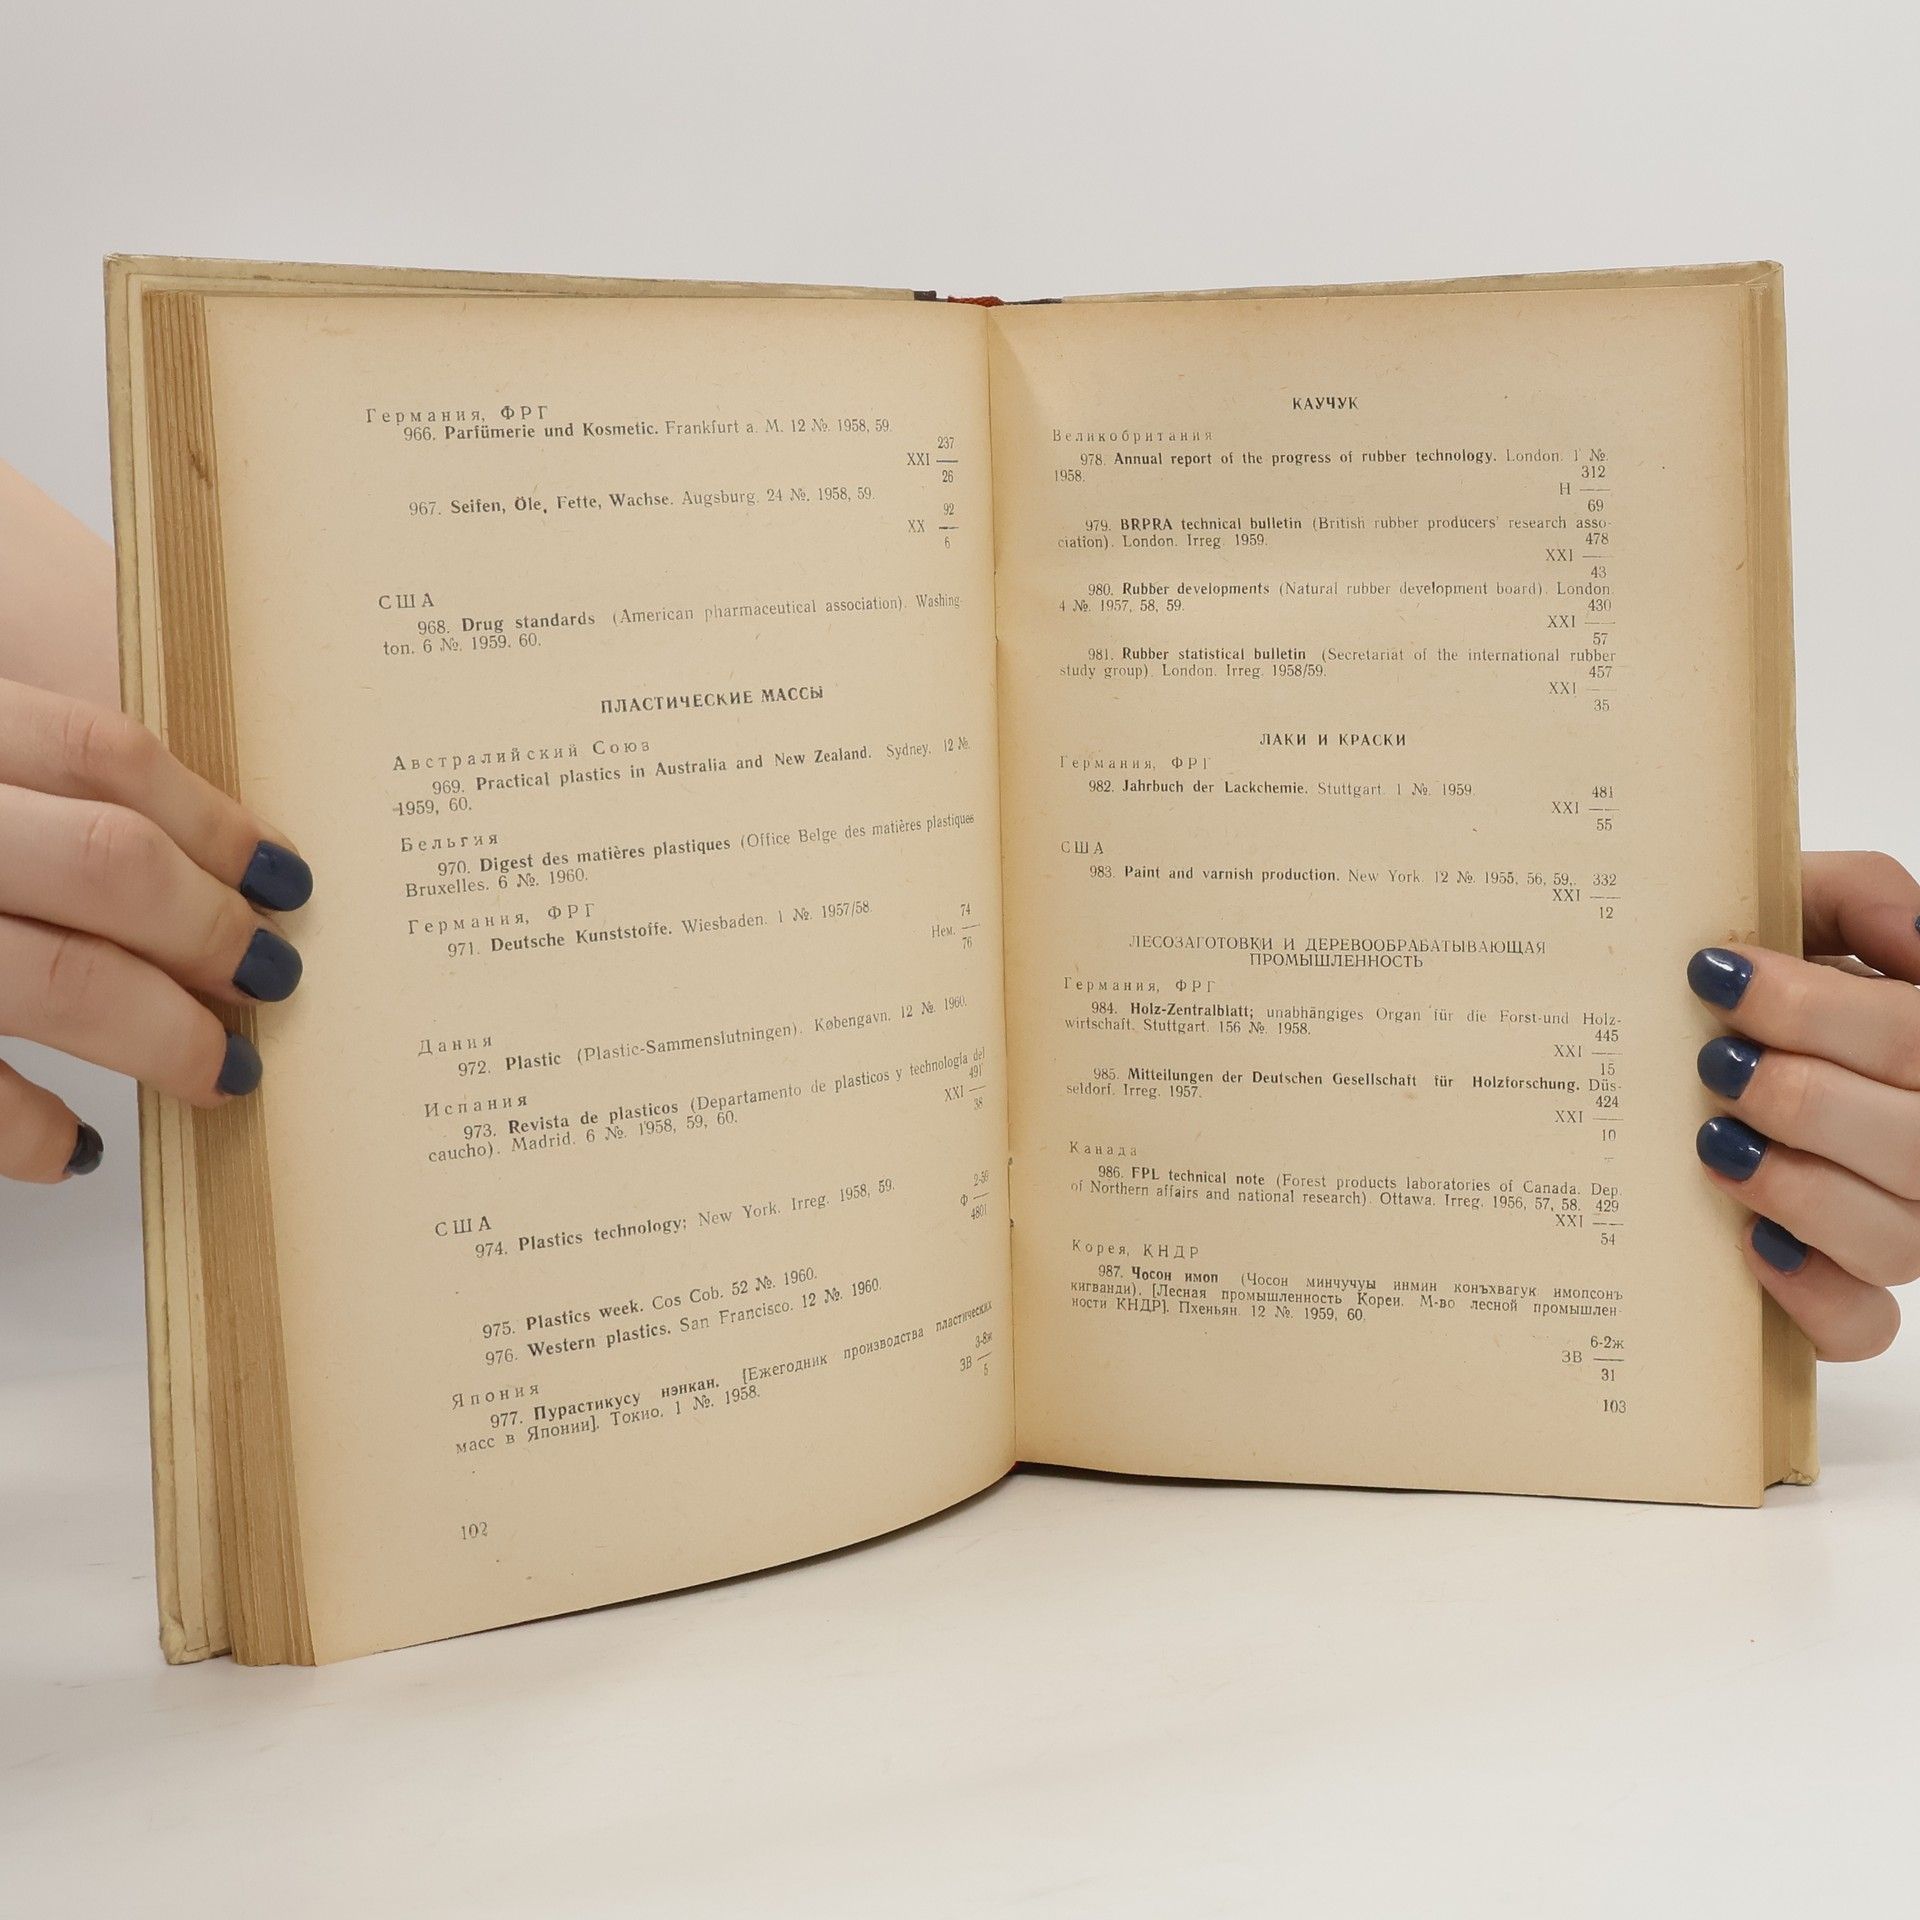 Германия, ФРГ
966. Parfümerie und Kosmetic. Frankfurt a. M. 12 №. 1958, 59.
237
XXI —
26
967. Seifen, Öle, Fette, Wachse. Augsburg. 24 №. 1958, 59.
92
XX —
6
США
968. Drug standards (American pharmaceutical association). Washing-
ton. 6 №. 1959. 60.
ПЛАСТИЧЕСКИЕ МАССЫ
Австралийский Союз
969. Practical plastics in Australia and New Zealand. Sydney. 12 №.
1959, 60.
Бельгия
970. Digest des matières plastiques (Office Belge des matières plastiques
Bruxelles. 6 №. 1960.
Германия, ФРГ
971. Deutsche Kunststoffe. Wiesbaden. 1 №. 1957/58.
74
Нем. —
76
Дания
972. Plastic (Plastic-Sammenslutningen). København. 12 №. 1960.
Испания
973. Revista de plasticos (Departamento de plasticos y technologia del
caucho). Madrid. 6 №. 1958, 59, 60.
491
XXI —
38
США
974. Plastics technology; New York. Irreg. 1958, 59.
2-56
Ф —
4801
975. Plastics week. Cos Cob. 52 №. 1960.
976. Western plastics. San Francisco. 12 №. 1960.
Япония
977. Пурастикусу нэнкан. [Ежегодник производства пластических
масс в Японии]. Токио. 1 №. 1958.
3-8ж
ЗВ —
5
102
КАУЧУК
Великобритания
978. Annual report of the progress of rubber technology. London. 1 №.
1958.
312
Н —
69
979. BRPRA technical bulletin (British rubber producers' research asso-
ciation). London. Irreg. 1959.
478
XXI —
43
980. Rubber developments (Natural rubber development board). London.
4 №. 1957, 58, 59.
430
XXI —
57
981. Rubber statistical bulletin (Secretariat of the international rubber
study group). London. Irreg. 1958/59.
457
XXI —
35
ЛАКИ И КРАСКИ
Германия, ФРГ
982. Jahrbuch der Lackchemie. Stuttgart. 1 №. 1959.
481
XXI —
55
США
983. Paint and varnish production. New York. 12 №. 1955, 56, 59,. 332
XXI —
12
ЛЕСОЗАГОТОВКИ И ДЕРЕВООБРАБАТЫВАЮЩАЯ
ПРОМЫШЛЕННОСТЬ
Германия, ФРГ
984. Holz-Zentralblatt; unabhängiges Organ für die Forst-und Holz-
wirtschaft. Stuttgart. 156 №. 1958.
445
XXI —
15
985. Mitteilungen der Deutschen Gesellschaft für Holzforschung. Düs-
seldorf. Irreg. 1957.
424
XXI —
10
Канада
986. FPL technical note (Forest products laboratories of Canada. Dep.
of Northern affairs and national research). Ottawa. Irreg. 1956, 57, 58. 429
XXI —
54
Корея, КНДР
987. Чосон имоп (Чосон минчучуы инмин конъхвагук имопсонъ
кигванди). [Лесная промышленность Кореи. М-во лесной промышлен-
ности КНДР]. Пхеньян. 12 №. 1959, 60.
6-2ж
ЗВ —
31
103